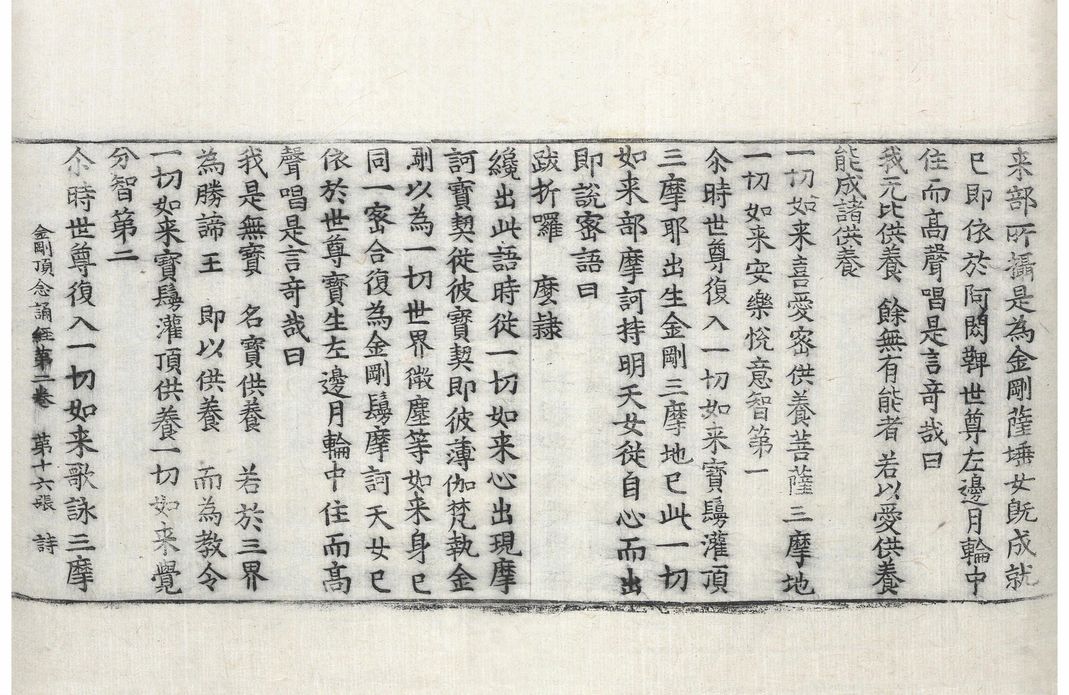 来部所攝是為金剛薩埵女既成就
已即依於阿閦鞞世尊左邊月輪中
住而高聲唱是言奇哉曰
我元比供養　餘無有能者　若以愛供養
能成諸供養
一切如来喜愛密供養菩薩三摩地
一切如来安樂悅意智第一
尒時世尊復入一切如来寶鬘灌頂
三摩耶出生金剛三摩地已此一切
如来部摩訶持明天女從自心而出
即說密語曰
跋折囉　麼隷
纔出此語時從一切如来心出現摩
訶寶契從彼寶契即彼薄伽梵執金
剛以為一切世界微塵等如来身已
同一密合復為金剛鬘摩訶天女已
依於世尊寶生左邊月輪中住而高
聲唱是言奇哉曰
我是無寶　名寶供養　若於三界
為勝諦王　即以供養　而為教令
一切如来寶鬘灌頂供養一切如来覺
分智第二
尒時世尊復入一切如来歌詠三摩
金剛頂念誦經第二卷　第十六張　詩